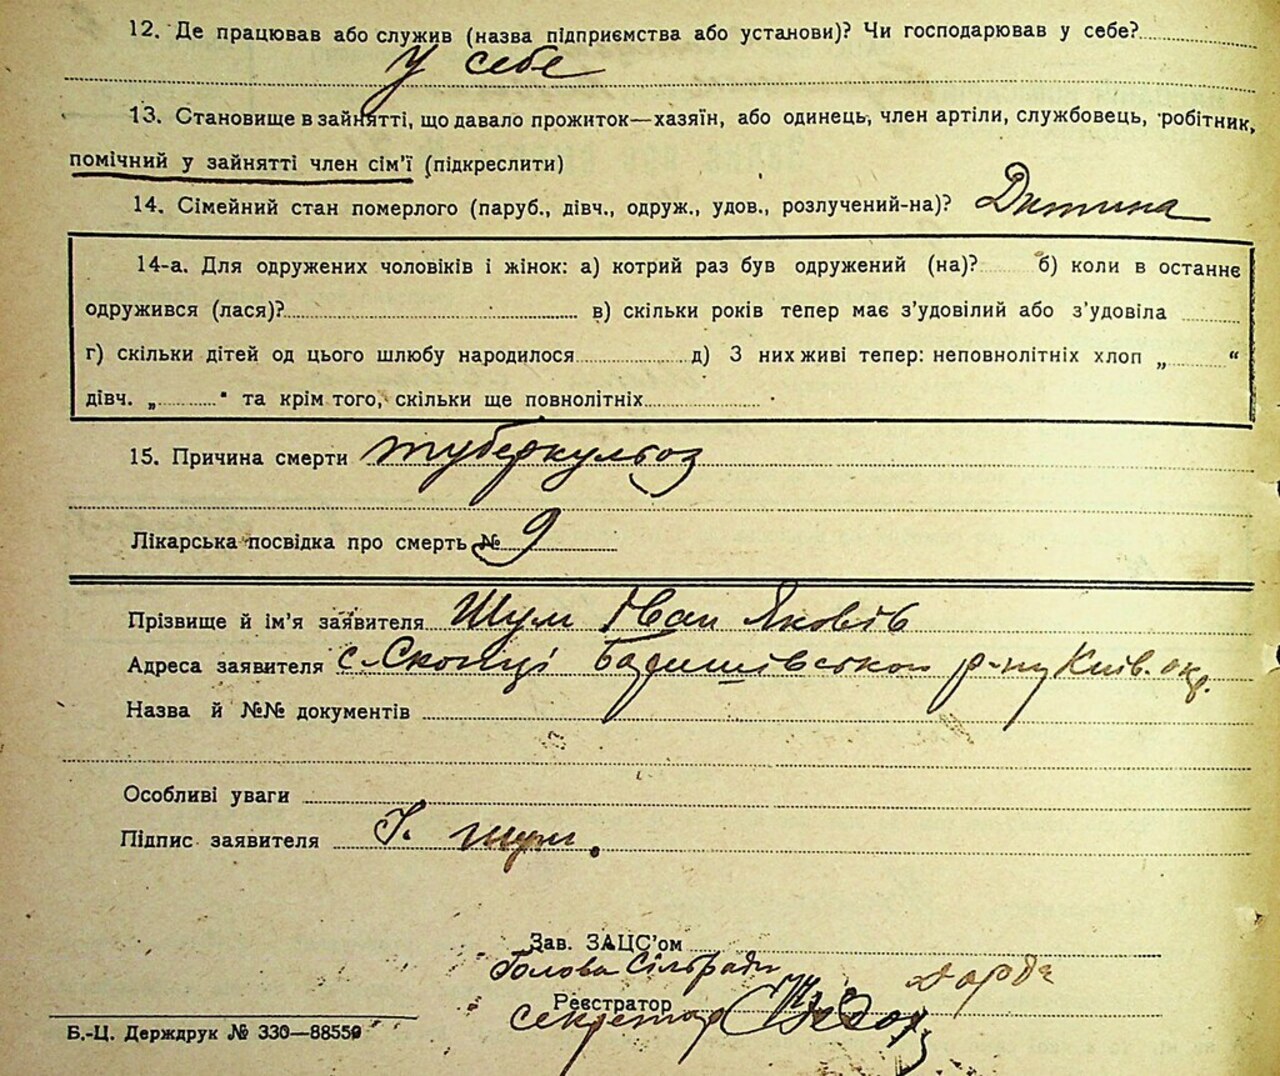 12. Де працював або служив (назва підприємства або установи)? Чи господарював у себе?
У себе
13. Становище в зайнятті, що давало прожиток—хазяїн, або одинець, член артіли, службовець, робітник,
помічний у зайнятті член сім'ї (підкреслити)
14. Сімейний стан померлого (паруб., дівч., одруж., удов., розлучений-на)? Дитина
14-а. Для одружених чоловіків і жінок: а) котрий раз був одружений (на)? б) коли в останнє
одружився (лася)? в) скільки років тепер має з'удовілий або з'удовіла
г) скільки дітей од цього шлюбу народилося д) З них живі тепер: неповнолітніх хлоп „ “
дівч. „ “ та крім того, скільки ще повнолітніх
15. Причина смерти туберкульоз
Лікарська посвідка про смерть № 9
Прізвище й ім'я заявителя Шум Іван Яковів
Адреса заявителя с. Скопці Баришівськой р-ну Київ. окр.
Назва й №№ документів
Особливі уваги
Підпис заявителя І. Шум.
Зав. ЗАЦС'ом
Голова Сільради
Реєстратор
секретар
Б.-Ц. Держдрук № 330—88559